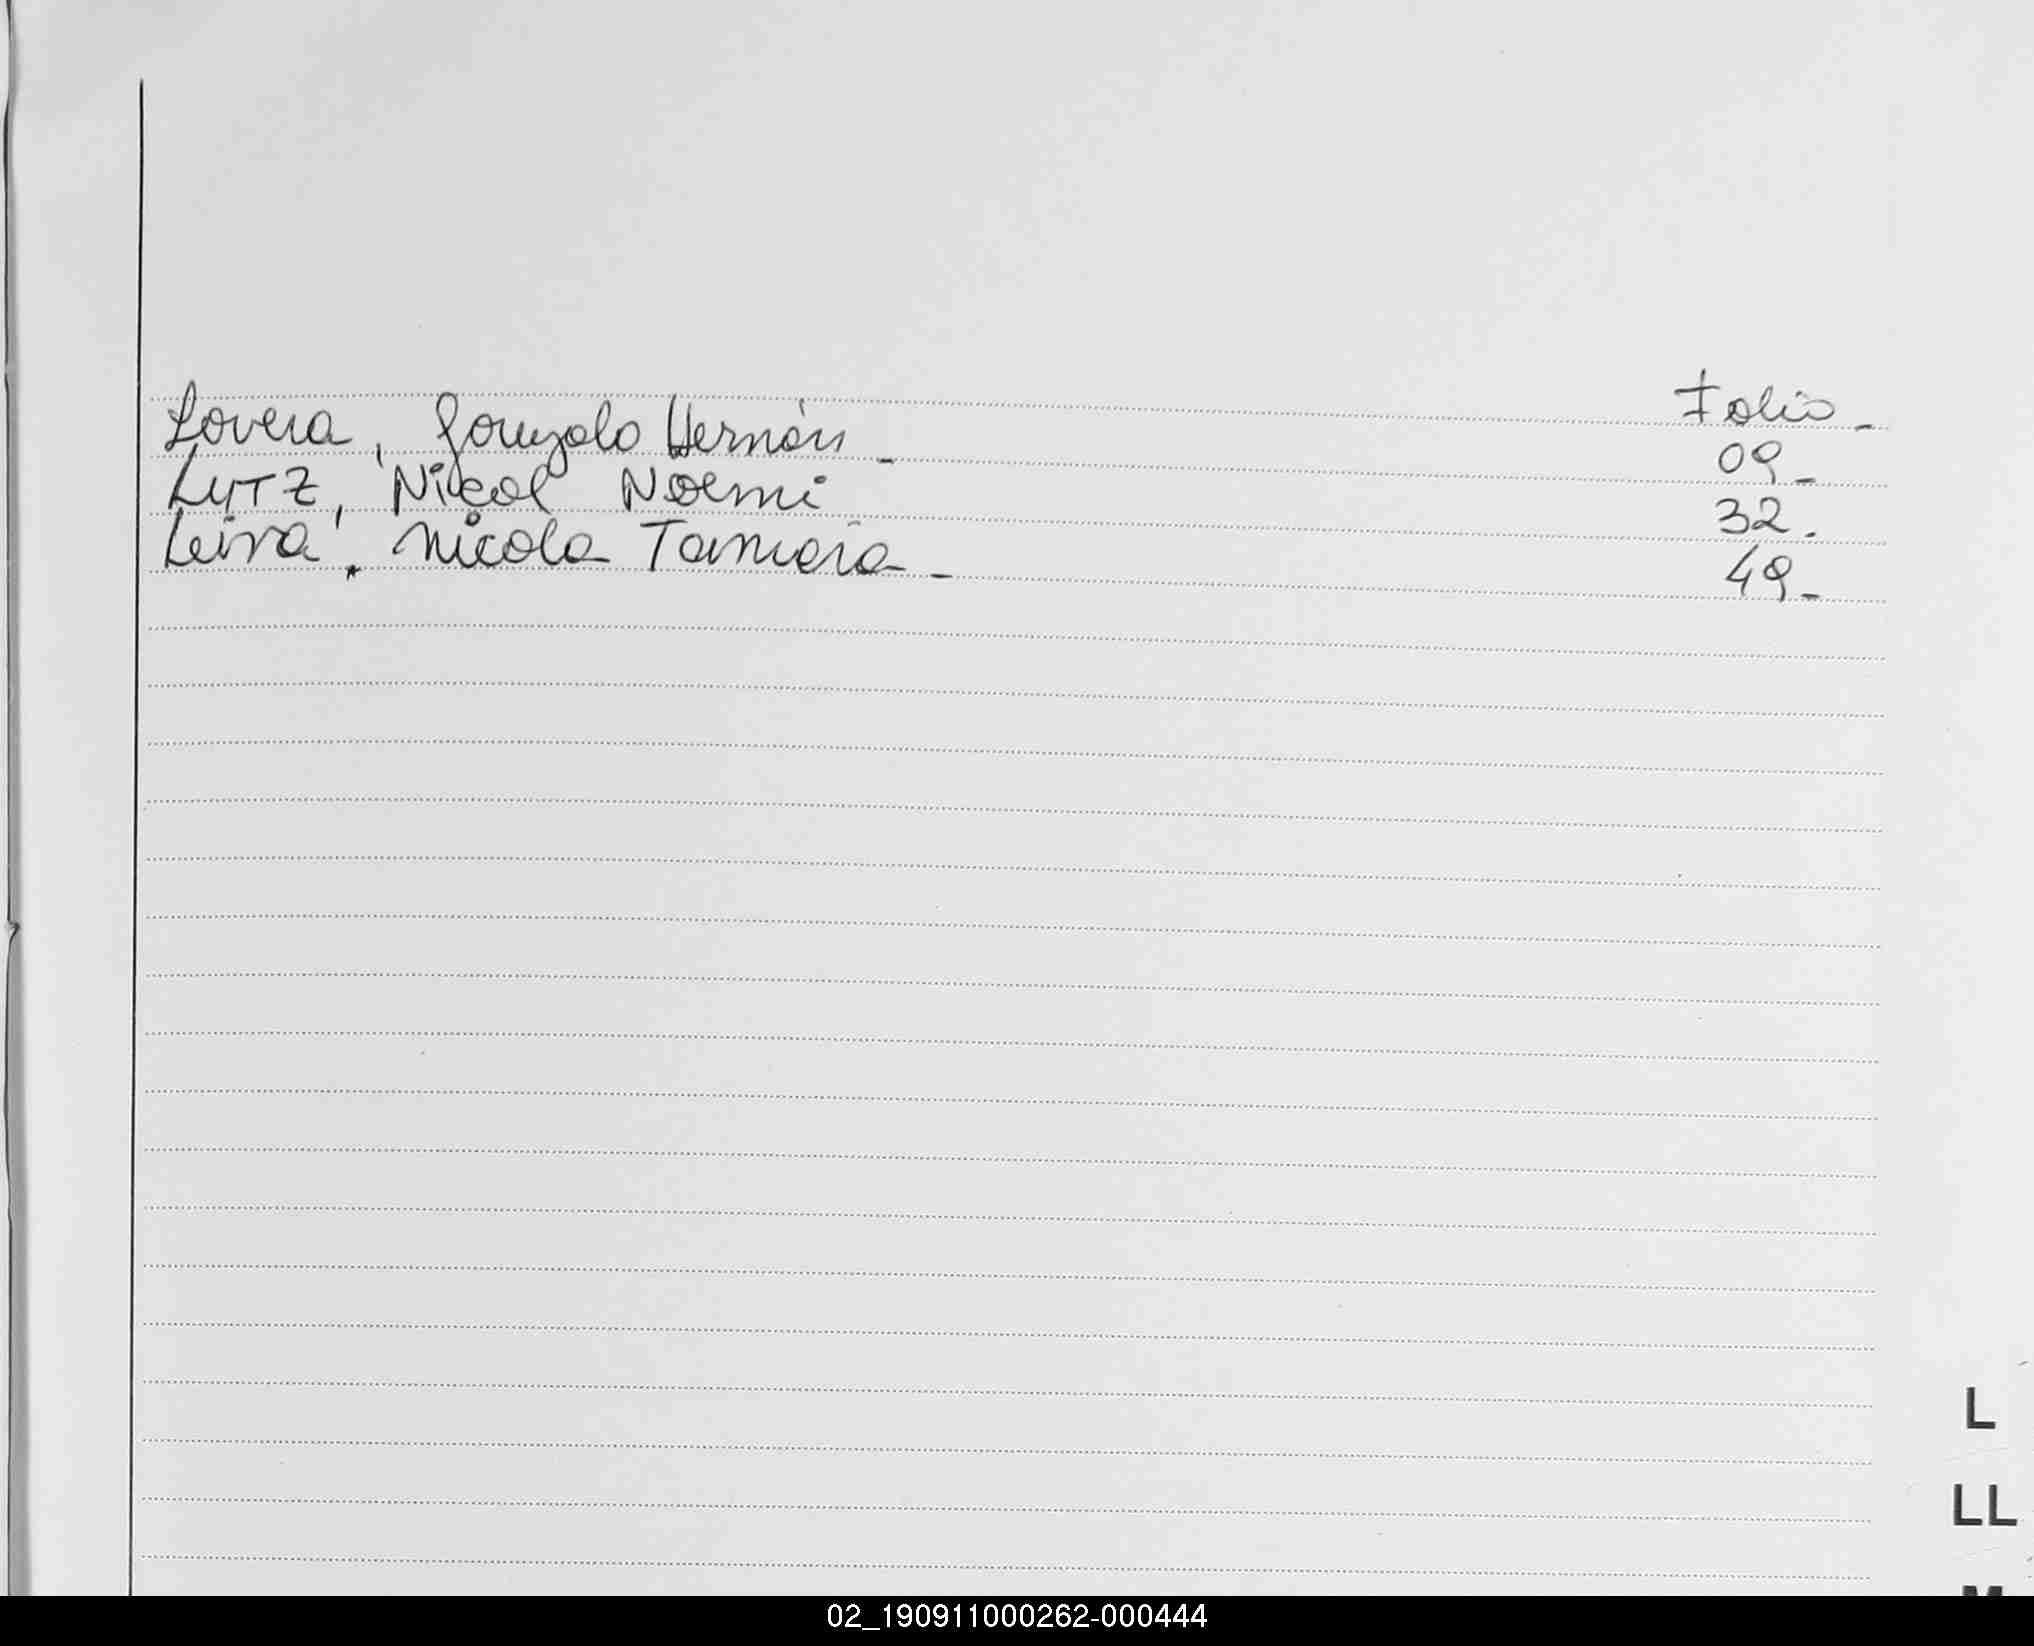 Folio_
Lovera, Gonzalo Hernán_ 09_
Lutz, Nicol Noemi 32.
Leiva, Nicola Tamara_ 49_
L
LL
M
02_190911000262-000444